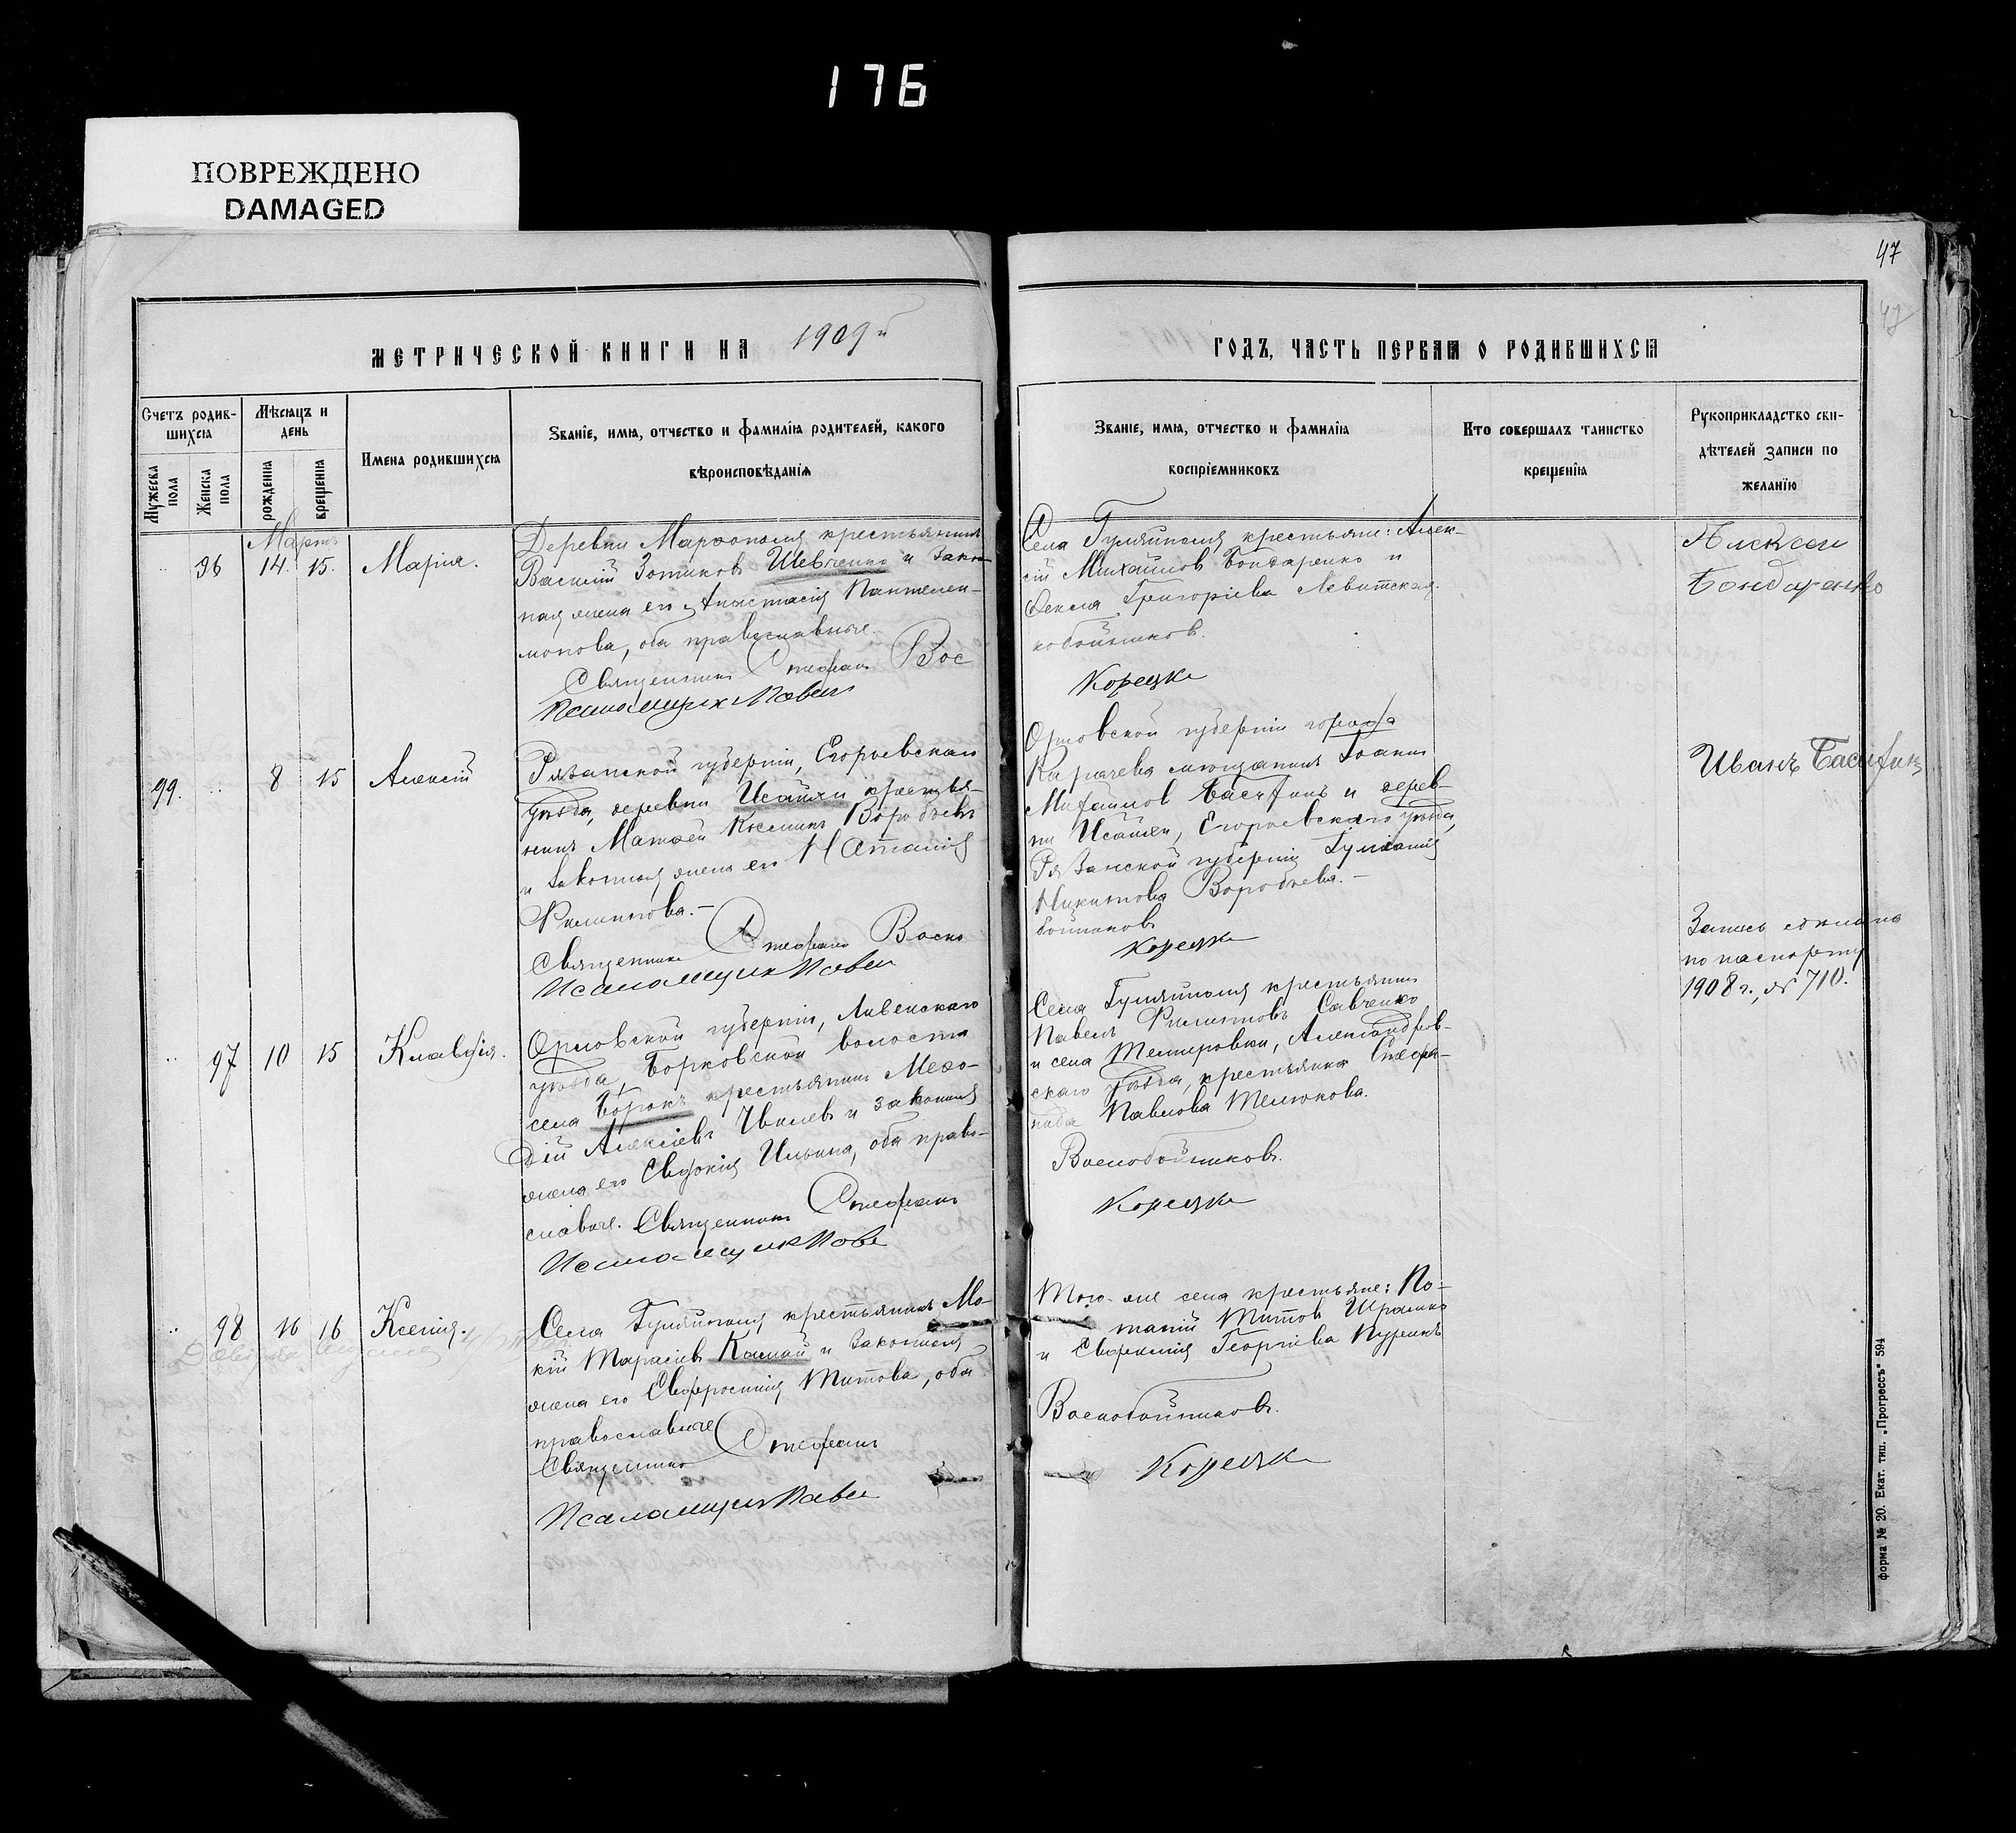 176
ПОВРЕЖДЕНО
DAMAGED
47
47
МЕТРИЧЕСКОЙ КНИГИ НА 1909й
ГОДЪ, ЧАСТЬ ПЕРВАЯ О РОДИВШИХСЯ
Счетъ родив-
шихся
Мѣсяцъ и
день
Имена родившихся
Званіе, имя, отчество и фамилія родителей, какого
вѣроисповѣданія
Мужеска
пола
Женска
пола
рожденія
крещенія
Званіе, имя, отчество и фамилія
воспріемниковъ
Кто совершалъ таинство
крещенія
Рукоприкладство сви-
дѣтелей записи по
желанію
Мартъ
96 14. 15. Марія.
Деревни Марфополя крестьянинъ
Василій Зотиковъ Шевченко и закон-
ная жена его Анастасія Пантелеи-
монова, оба православные.
Священникъ Стефанъ Вос
Псаломщикъ Павелъ
Села Гуляйполя крестьяне: Алек-
сій Михайловъ Бондаренко и
Григоріева Левитская.
Корецки
Алексей
Бондаренко
99. 8 15 Алексій
Рязанской губерніи, Егорьевскаго
уѣзда, деревни Исайки крестья-
нинъ Матѳей Козминъ Воробьевъ
и законная жена его Наталія
Филиппова.-
Священникъ Стефанъ Воско
Псаломщикъ Павелъ
Орловской губерніи города
Карачева мѣщанинъ Іоаннъ
Михайловъ и дерев-
ни Исайки, Егорьевскаго уѣзда,
Рязанской губерніи
Никитова Воробьева.-
бойниковъ
Корецки
Иванъ
Запись сдѣлана
по паспорту
1908 г., № 710.
97 10 15 Клавдія.
Орловской губерніи, Ливенскаго
уѣзда, Борковской волости
села Борокъ крестьянинъ Меѳо-
дій Алексіевъ и законная
жена его Евдокія Ильина, оба право-
славные. Священникъ Стефанъ
Псаломщикъ Паве
Села Гуляйполя крестьянинъ
Павелъ Филипповъ Савченко
и села Темировки, Александров-
скаго уѣзда, крестьянка Степа-
нида Павлова Телюкова.
Воспобойниковъ.
Корецки
98 16 16 Ксенія.
Села Гуляйполя крестьянинъ Мо-
кій Тарасіевъ и законная
жена его Евфросинія Титова, оба
православные
Священникъ Стефанъ
Псаломщикъ Павел
Того-же села крестьяне: По-
тапій Титовъ Шрамко
и Евфимія Георгіева
Воспобойниковъ.
Корецки
форма № 20. Екат. тип. „Прогрессъ" 594